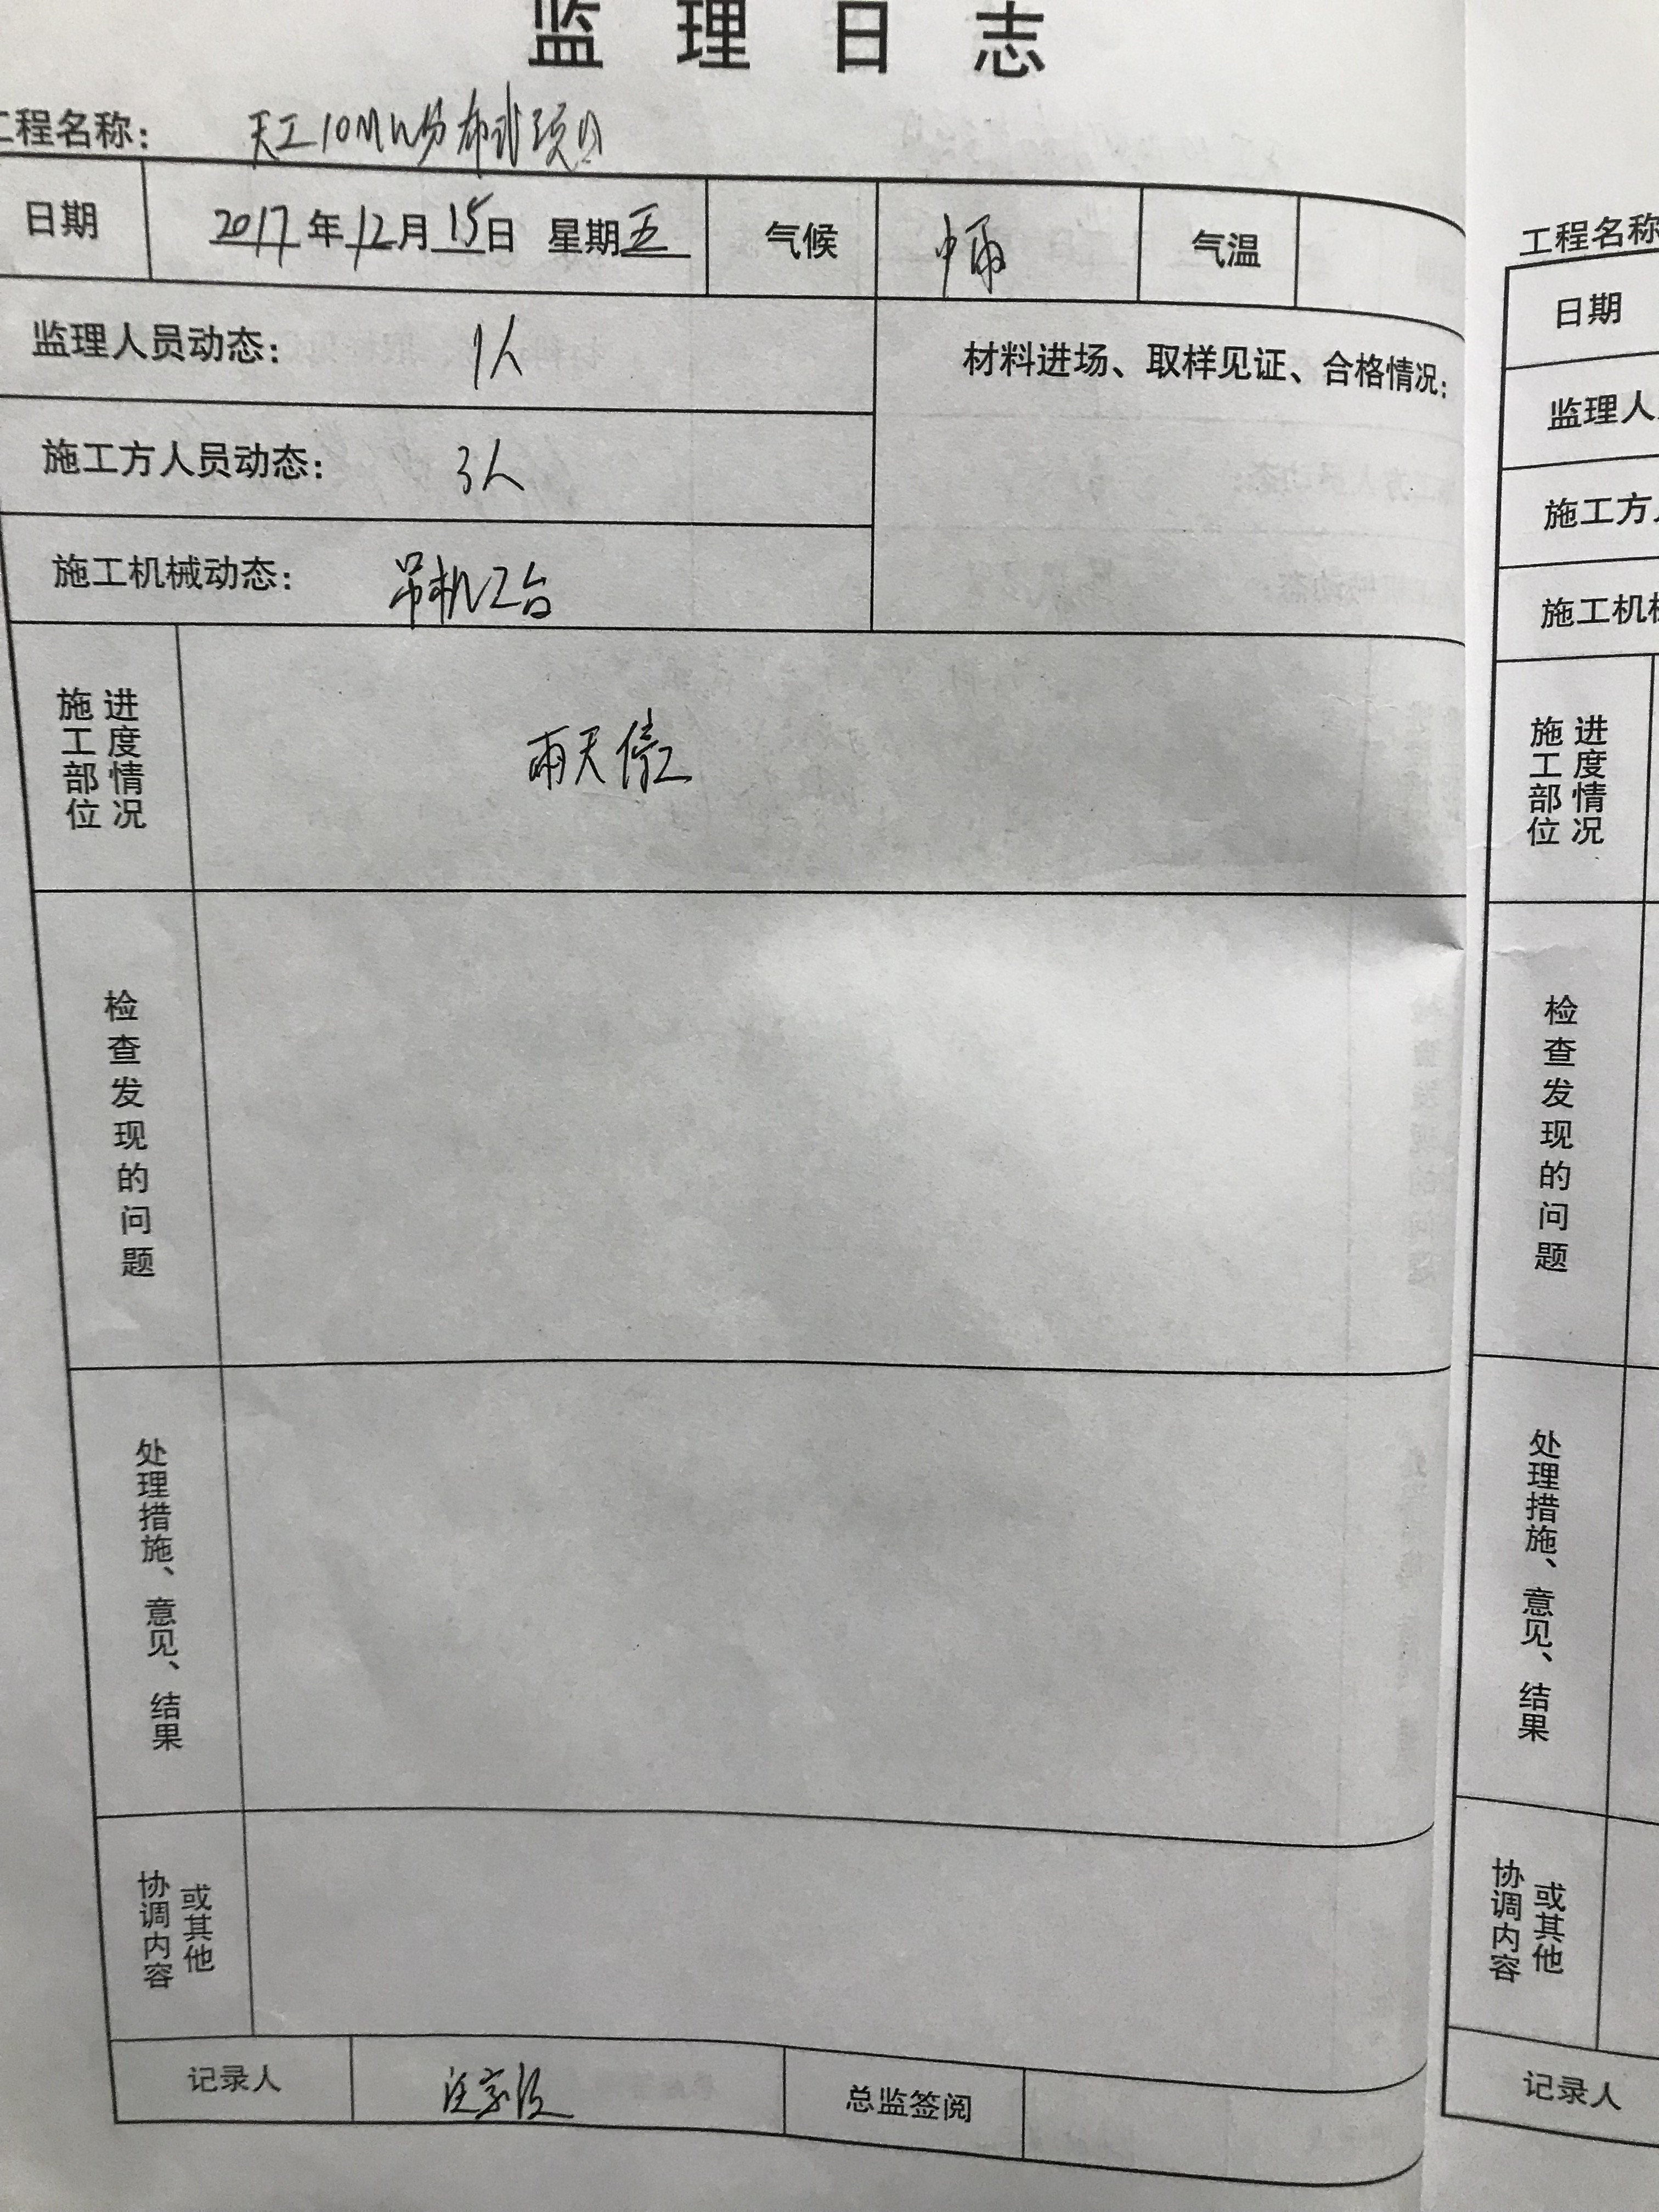 监理日志
工程名称： 天工10MW分布式项目
日期 2017年12月15日 星期五 气候 中雨 气温
监理人员动态： 1人
材料进场、取样见证、合格情况：
施工方人员动态： 3人
施工机械动态： 吊机2台
施工部位
进度情况
雨天停工
检查发现的问题
处理措施、意见、结果
协调内容
或其他
记录人 汪 总监签阅
工程名称
日期
监理人
施工方人
施工机械
施工部位
进度情况
检查发现的问题
处理措施、意见、结果
协调内容
或其他
记录人